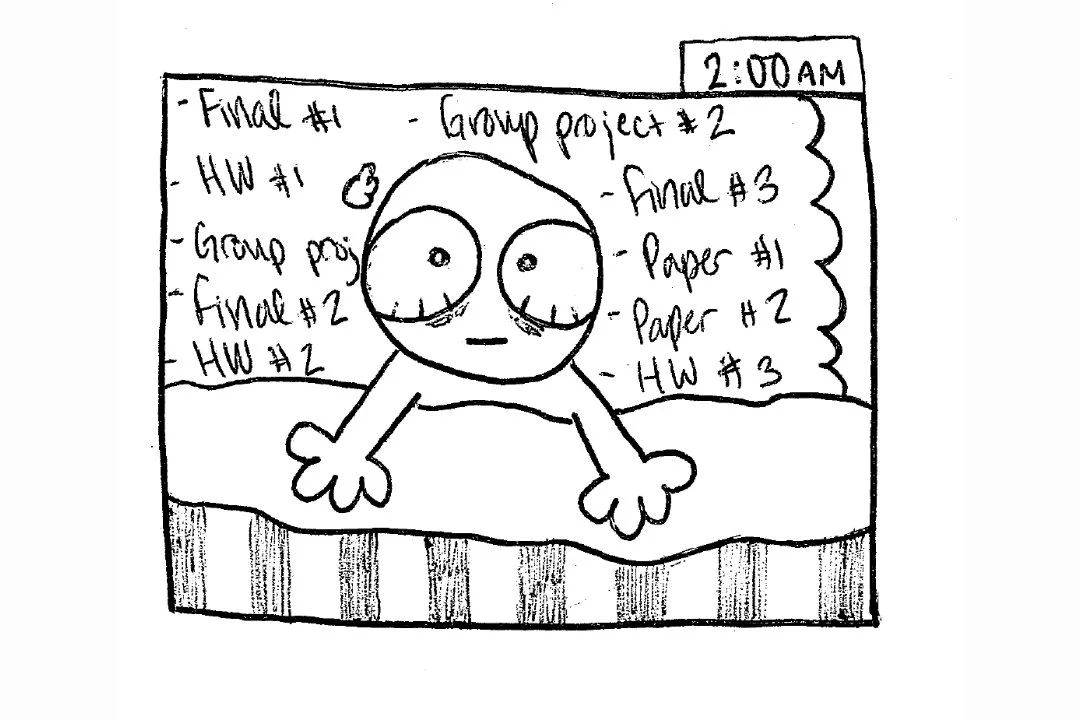 2:00AM
- Final #1
- HW #1
- Group proj
- Final #2
- HW #2
- Group project #2
- Final #3
- Paper #1
- Paper #2
- HW #3